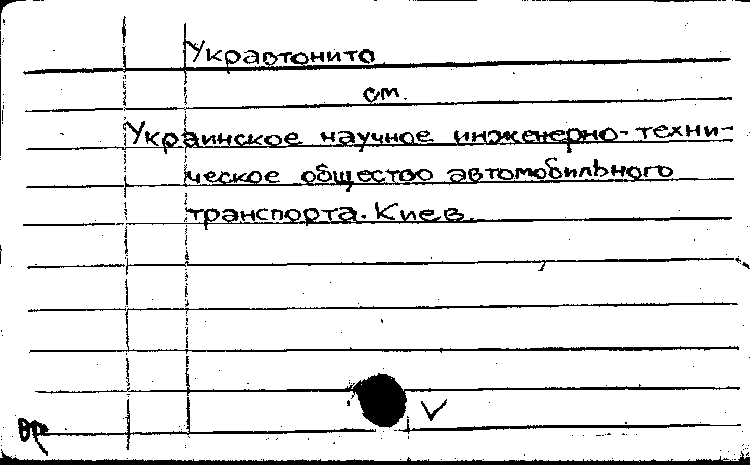 Укравтонито
см.
Украинское научное инженерно-техни-
ческое общество автомобильного
транспорта. Киев.